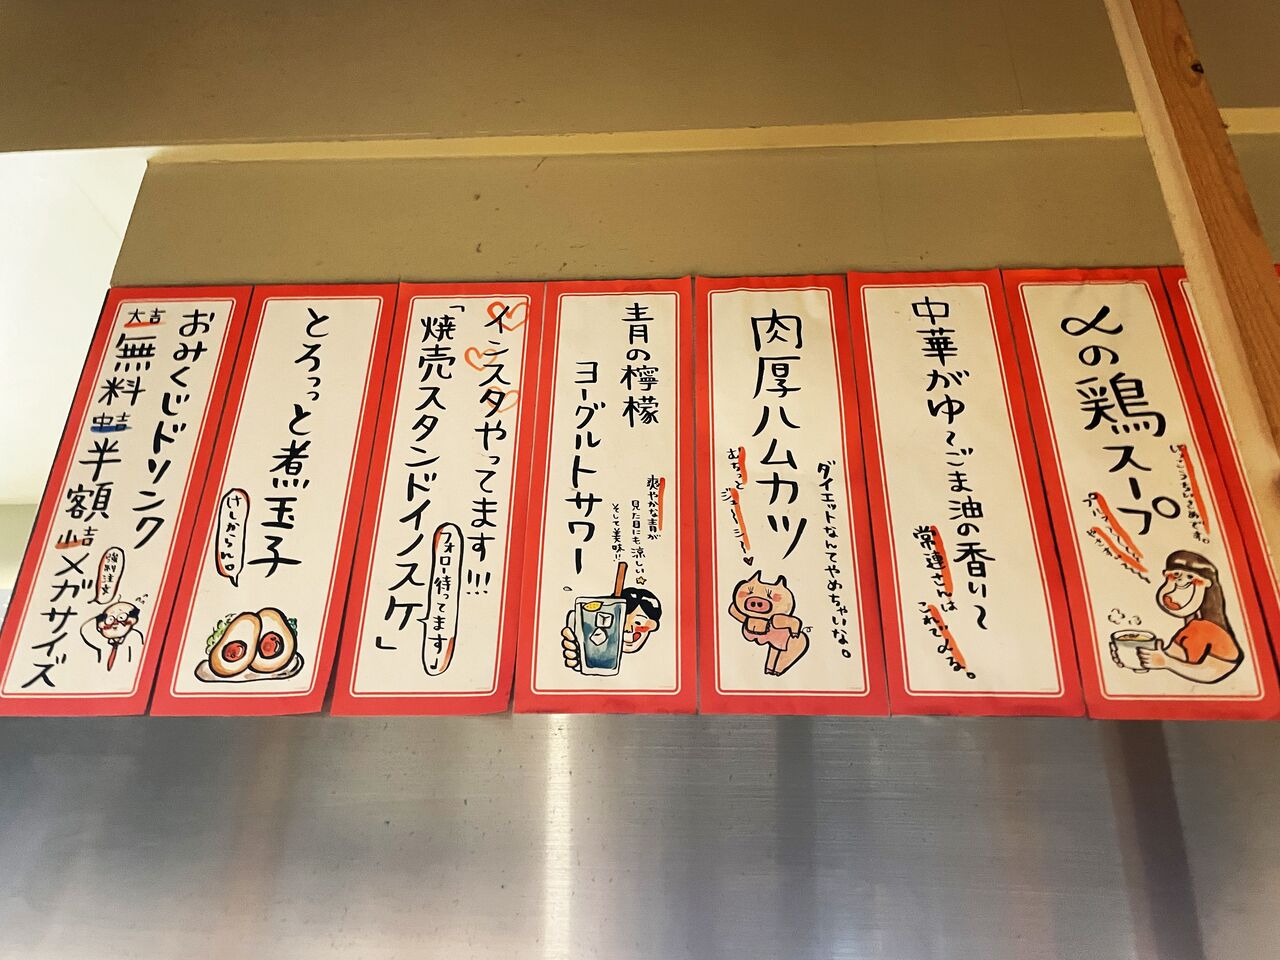 〆の鶏スープ
中華がゆ～ごま油の香り～
常連さんは
これでみる。
肉厚ハムカツ
ダイエットなんてやめちゃいな。
むちっと
ジューシ～♥
青の檸檬
ヨーグルトサワー
爽やかな青が
見た目にも涼しい☆
そして美味!!
インスタやってます!!!
「焼売スタンドイノスケ」
フォロー待ってます♪
とろっっと煮玉子
けしからん。
おみくじドリンク
大吉無料中吉半額小吉メガサイズ
強制注文